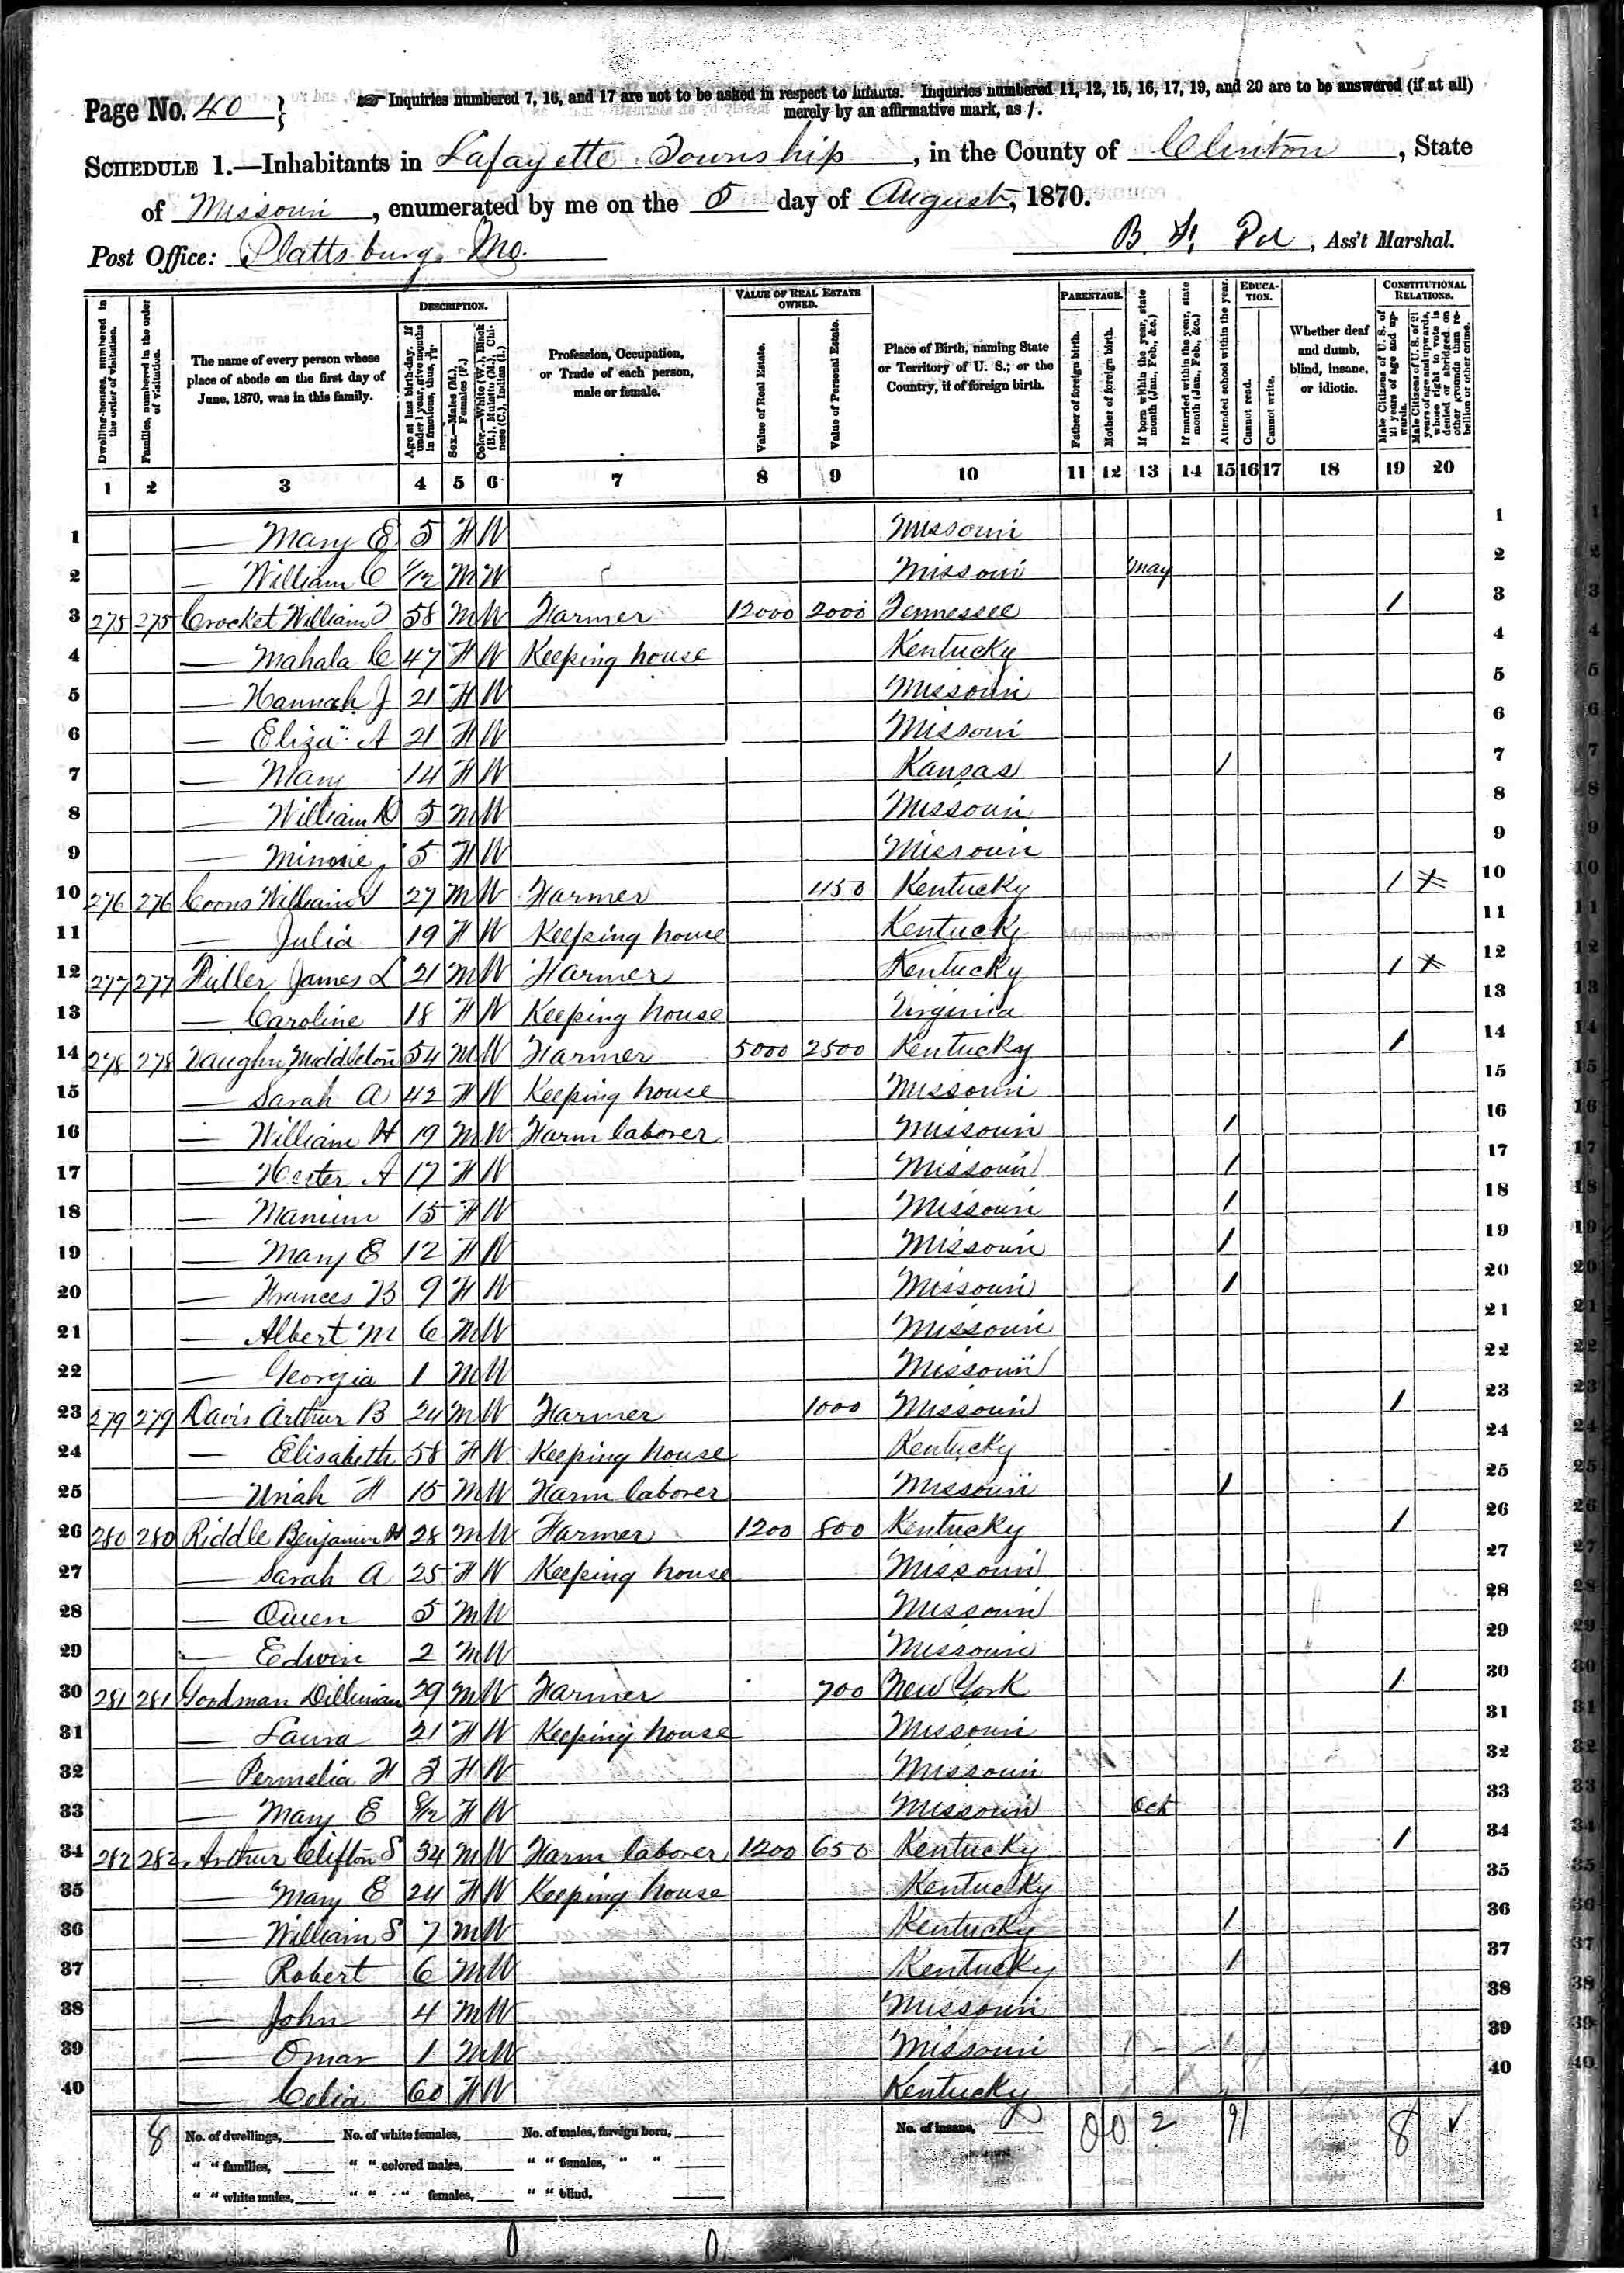 Page No. 40 } Inquiries numbered 7, 16, and 17 are not to be asked in respect to infants. Inquiries numbered 11, 12, 15, 16, 17, 19, and 20 are to be answered (if at all)
merely by an affirmative mark, as /.
SCHEDULE 1.—Inhabitants in Lafayette Township, in the County of Clinton, State
of Missouri, enumerated by me on the 5 day of August, 1870.
Post Office: Plattsburg Mo. B F, Ass't Marshal.
Dwelling-houses, numbered in the order of visitation.
Families, numbered in the order of visitation.
The name of every person whose place of abode on the first day of June, 1870, was in this family.
DESCRIPTION.
Age at last birth-day. If under 1 year, give months in fractions, thus,
Sex.—Males (M.), Females (F.)
Color.—White (W.), Black (B.), Mulatto (M.), Chinese (C.), Indian (I.)
Profession, Occupation, or Trade of each person, male or female.
VALUE OF REAL ESTATE OWNED.
Value of Real Estate.
Value of Personal Estate.
Place of Birth, naming State or Territory of U. S.; or the Country, if of foreign birth.
PARENTAGE.
Father of foreign birth.
Mother of foreign birth.
If born within the year, state month (Jan., Feb., &c.)
If married within the year, state month (Jan., Feb., &c.)
Attended school within the year.
EDUCATION.
Cannot read.
Cannot write.
Whether deaf and dumb, blind, insane, or idiotic.
CONSTITUTIONAL RELATIONS.
Male Citizens of U. S. of 21 years of age and upwards.
Male Citizens of U. S. of 21 years of age and upwards, whose right to vote is denied or abridged on other grounds than rebellion or other crime.
1 2 3 4 5 6 7 8 9 10 11 12 13 14 15 16 17 18 19 20
1 — Mary E 5 F W Missouri 1
2 — William C 1/12 M W Missouri May 2
3 275 275 Crocket William 58 M W Farmer 12000 2000 Tennessee / 3
4 — Mahala C 47 F W Keeping house Kentucky 4
5 — Hannah J 21 F W Missouri 5
6 — Eliza A 21 F W Missouri 6
7 — Mary 14 F W Kansas / 7
8 — William D 5 M W Missouri 8
9 — Minnie 5 F W Missouri 9
10 276 276 Coons William 27 M W Farmer 1150 Kentucky / 10
11 — Julia 19 F W Keeping house Kentucky MyFamily.com 11
12 277 277 Fuller James L 21 M W Farmer Kentucky / 12
13 — Caroline 18 F W Keeping house Virginia 13
14 278 278 Vaughn Middleton 54 M W Farmer 5000 2500 Kentucky / 14
15 — Sarah A 42 F W Keeping house Missouri 15
16 — William H 19 M W Farm laborer Missouri / 16
17 — Hester A 17 F W Missouri / 17
18 — 15 F W Missouri / 18
19 — Mary E 12 F W Missouri / 19
20 — Frances B 9 F W Missouri / 20
21 — Albert M 6 M W Missouri 21
22 — Georgia 1 M W Missouri 22
23 279 279 Davis Arthur B 24 M W Farmer 1000 Missouri / 23
24 — Elisabeth 58 F W Keeping house Kentucky 24
25 — Uriah F 15 M W Farm laborer Missouri / 25
26 280 280 Riddle Benjamin H 28 M W Farmer 1200 800 Kentucky / 26
27 — Sarah A 25 F W Keeping house Missouri 27
28 — Owen 5 M W Missouri 28
29 — Edwin 2 M W Missouri 29
30 281 281 Goodman 29 M W Farmer 700 New York / 30
31 — Laura 21 F W Keeping house Missouri 31
32 — Permelia F 3 F W Missouri 32
33 — Mary E 8/12 F W Missouri Oct 33
34 282 282 Arthur Clifton S 34 M W Farm laborer 1200 650 Kentucky / 34
35 — Mary E 24 F W Keeping house Kentucky 35
36 — William S 7 M W Kentucky / 36
37 — Robert 6 M W Kentucky / 37
38 — John 4 M W Missouri 38
39 — Omar 1 M W Missouri 39
40 — Celia 60 F W Kentucky 40
8 No. of dwellings, No. of white females, No. of males, foreign born, No. of insane, 0 0 2 8
" " families, " " colored males, " " females, " "
" " white males, " " " females, " " blind,